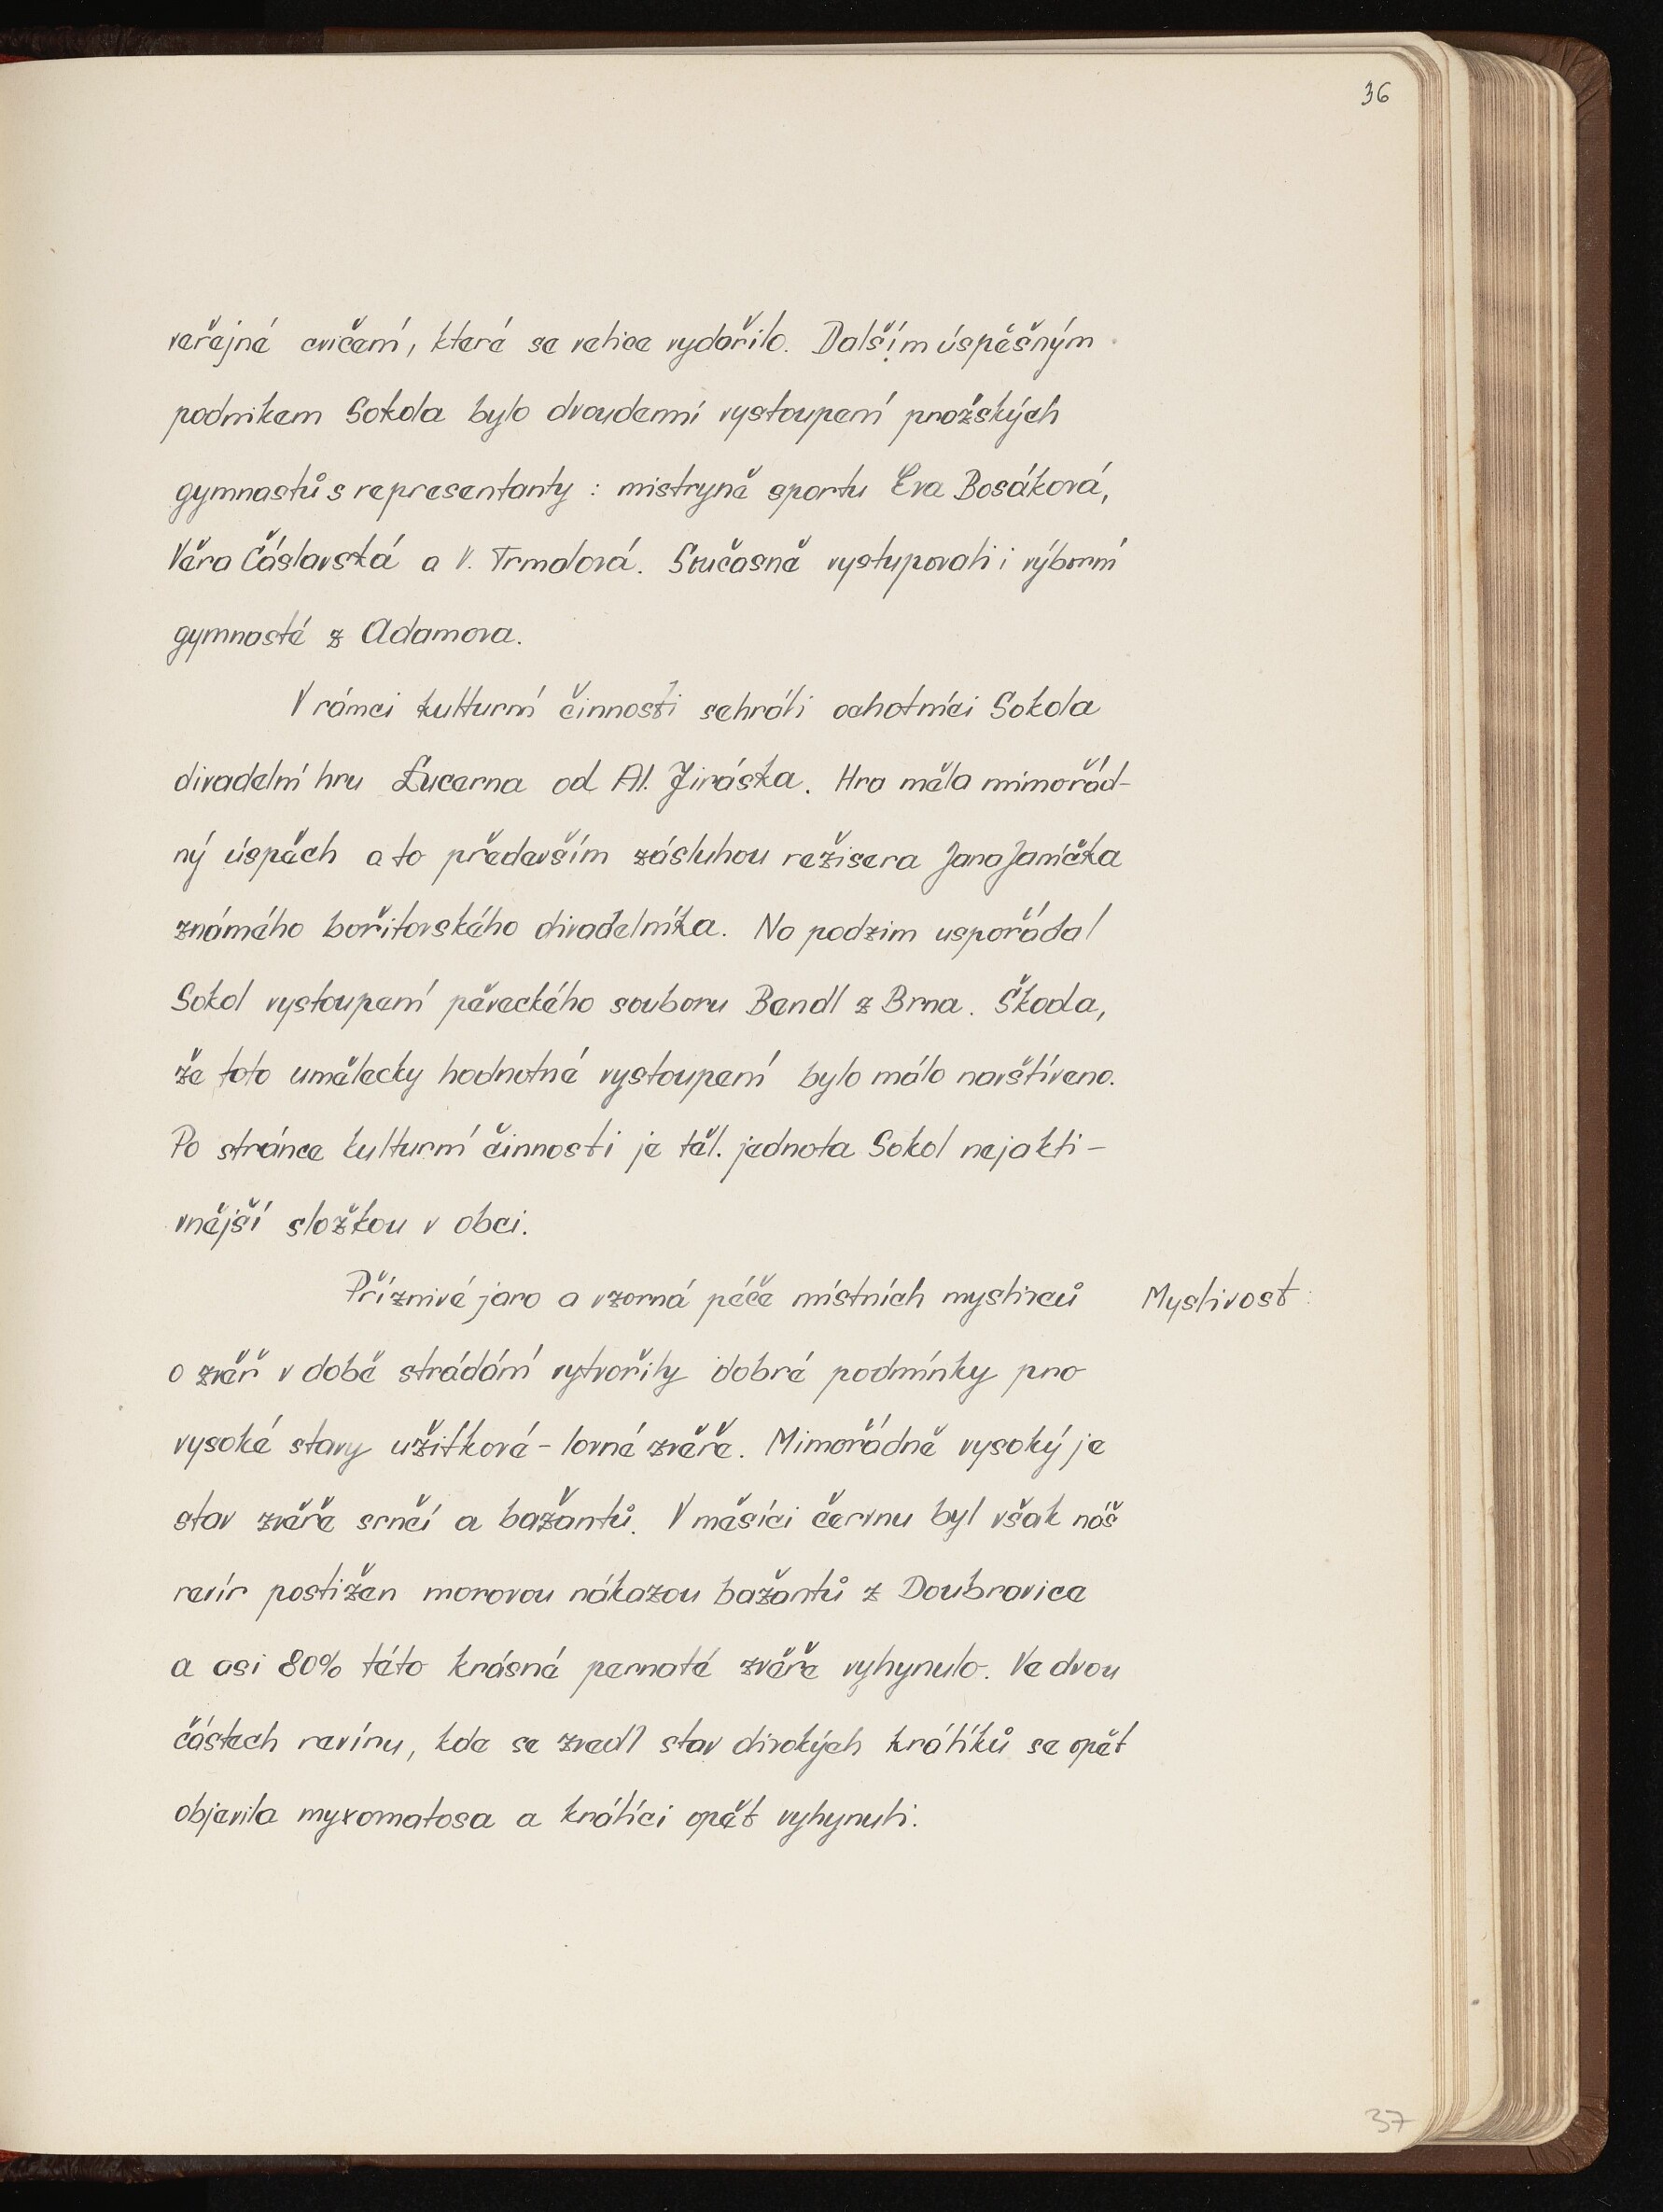 36
veřejné cvičení, které se velice vydařilo. Dalším úspěšným
podnikem Sokola bylo dvoudenní vystoupení pražských
gymnastů s representanty : mistryně sportu Eva Bosáková,
Věra Čáslavská a V. Trmalová. Současně vystupovali i výborní
gymnasté z Adamova.
V rámci kulturní činnosti sehráli ochotníci Sokola
divadelní hru Lucerna od Al. Jiráska. Hra měla mimořád-
ný úspěch a to především zásluhou režisera Jana Janíčka
známého bořitovského divadelníka. Na podzim uspořádal
Sokol vystoupení pěveckého souboru Bendl z Brna. Škoda,
že toto umělecky hodnotné vystoupení bylo málo navštíveno.
Po stránce kulturní činnosti je těl. jednota Sokol nejakti-
vnější složkou v obci.
Příznivé jaro a vzorná péče místních myslivců Myslivost:
o zvěř v době strádání vytvořily dobré podmínky pro
vysoké stavy užitkové - lovné zvěře. Mimořádně vysoký je
stav zvěře srnčí a bažantů. V měsíci červnu byl však náš
revír postižen morovou nákazou bažantů z Doubravice
a asi 80% této krásné pernaté zvěře vyhynulo. Ve dvou
částech revíru, kde se zvedl stav divokých králíků se opět
objevila myxomatosa a králíci opět vyhynuli.
37